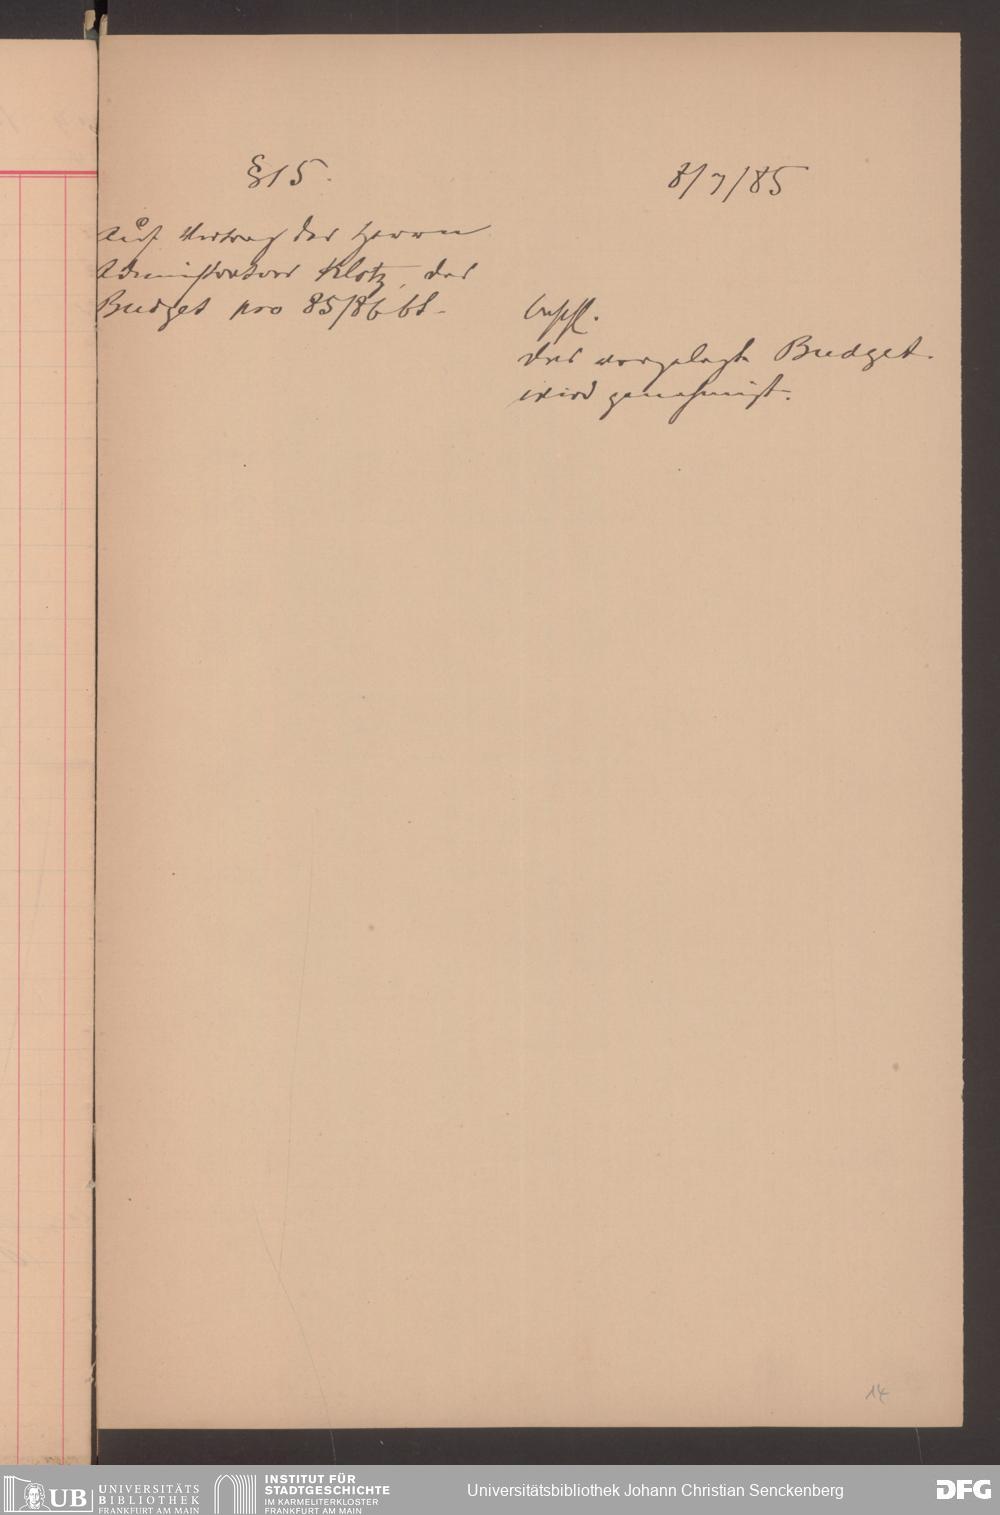 § 15.
8/7/85
Auf Vortrag des Herrn
Administrators Klotz, das
Budget pro 85/86 btr.
Beschl.
Das vorgelegte Budget
wird genehmigt.
14
UB UNIVERSITÄTS
BIBLIOTHEK
FRANKFURT AM MAIN
INSTITUT FÜR
STADTGESCHICHTE
IM KARMELITERKLOSTER
FRANKFURT AM MAIN
Universitätsbibliothek Johann Christian Senckenberg
DFG